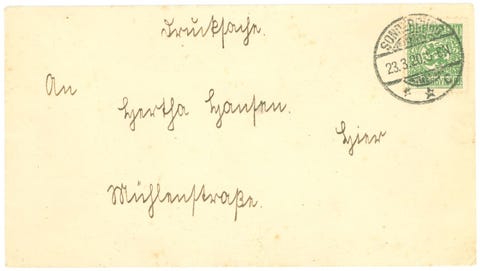 Drucksache.
SONDERBURG
23.3.20
An
Hertha Hansen.
Hier
Mühlenstraße.